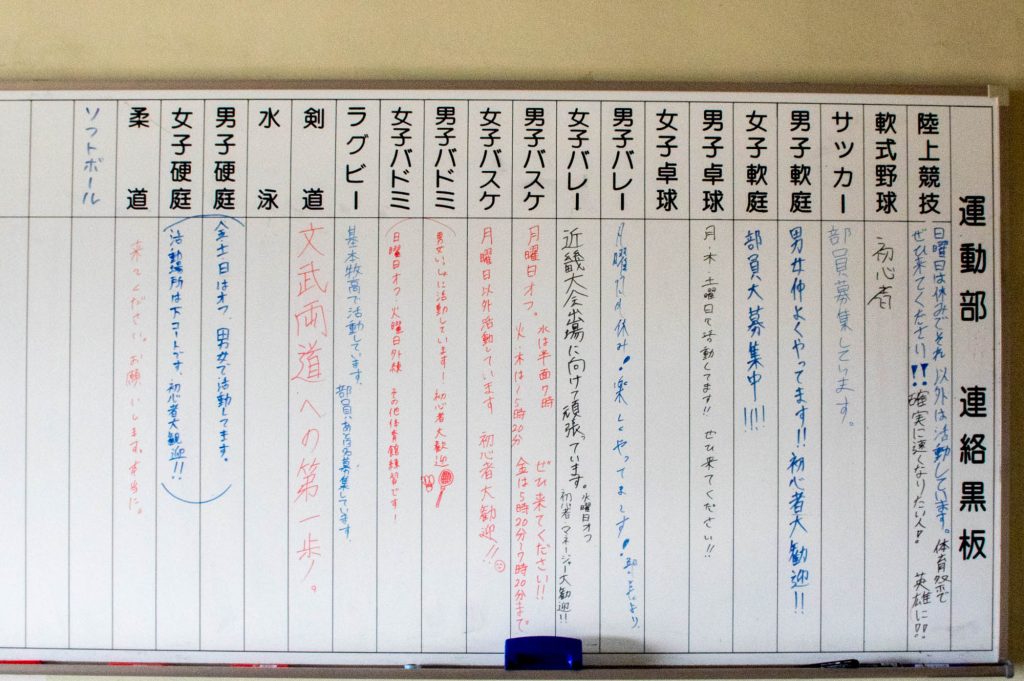 運動部 連絡黒板
陸上競技
日曜日は休みでそれ以外は活動しています。体育祭で
ぜひ来てください!!確実に速くなりたい人! 英雄に!!
軟式野球
初心者
サッカー
部員募集してます。
男子軟庭
男女仲よくやってます!!初心者大歓迎!!
女子軟庭
部員大募集中!!!!
男子卓球
月・木・土曜日で活動してます!! ぜひ来てください!!
女子卓球
男子バレー
月曜だけ休み!楽しくやってまーす! 部長より
女子バレー
近畿大会出場に向けて頑張っています。
火曜日オフ
初心者 マネージャー大歓迎!!
男子バスケ
月曜日オフ。 水は半面7時 ぜひ来てください!!
火・木は〜5時20分 金は5時20分〜7時20分まで
女子バスケ
月曜日以外活動しています 初心者大歓迎!!
男子バドミ
男女いっしょに活動しています! 初心者大歓迎
女子バドミ
日曜日オフ・火曜日外練 その他体育館練習です!
ラグビー
基本牧高で活動しています。
部員あと名募集しています。
剣道
文武両道への第一歩!。
水泳
男子硬庭
金土日はオフ、男女で活動してます。
女子硬庭
活動場所は下コートです。初心者大歓迎!!
柔道
来てください。お願いします。本当に。
ソフトボール